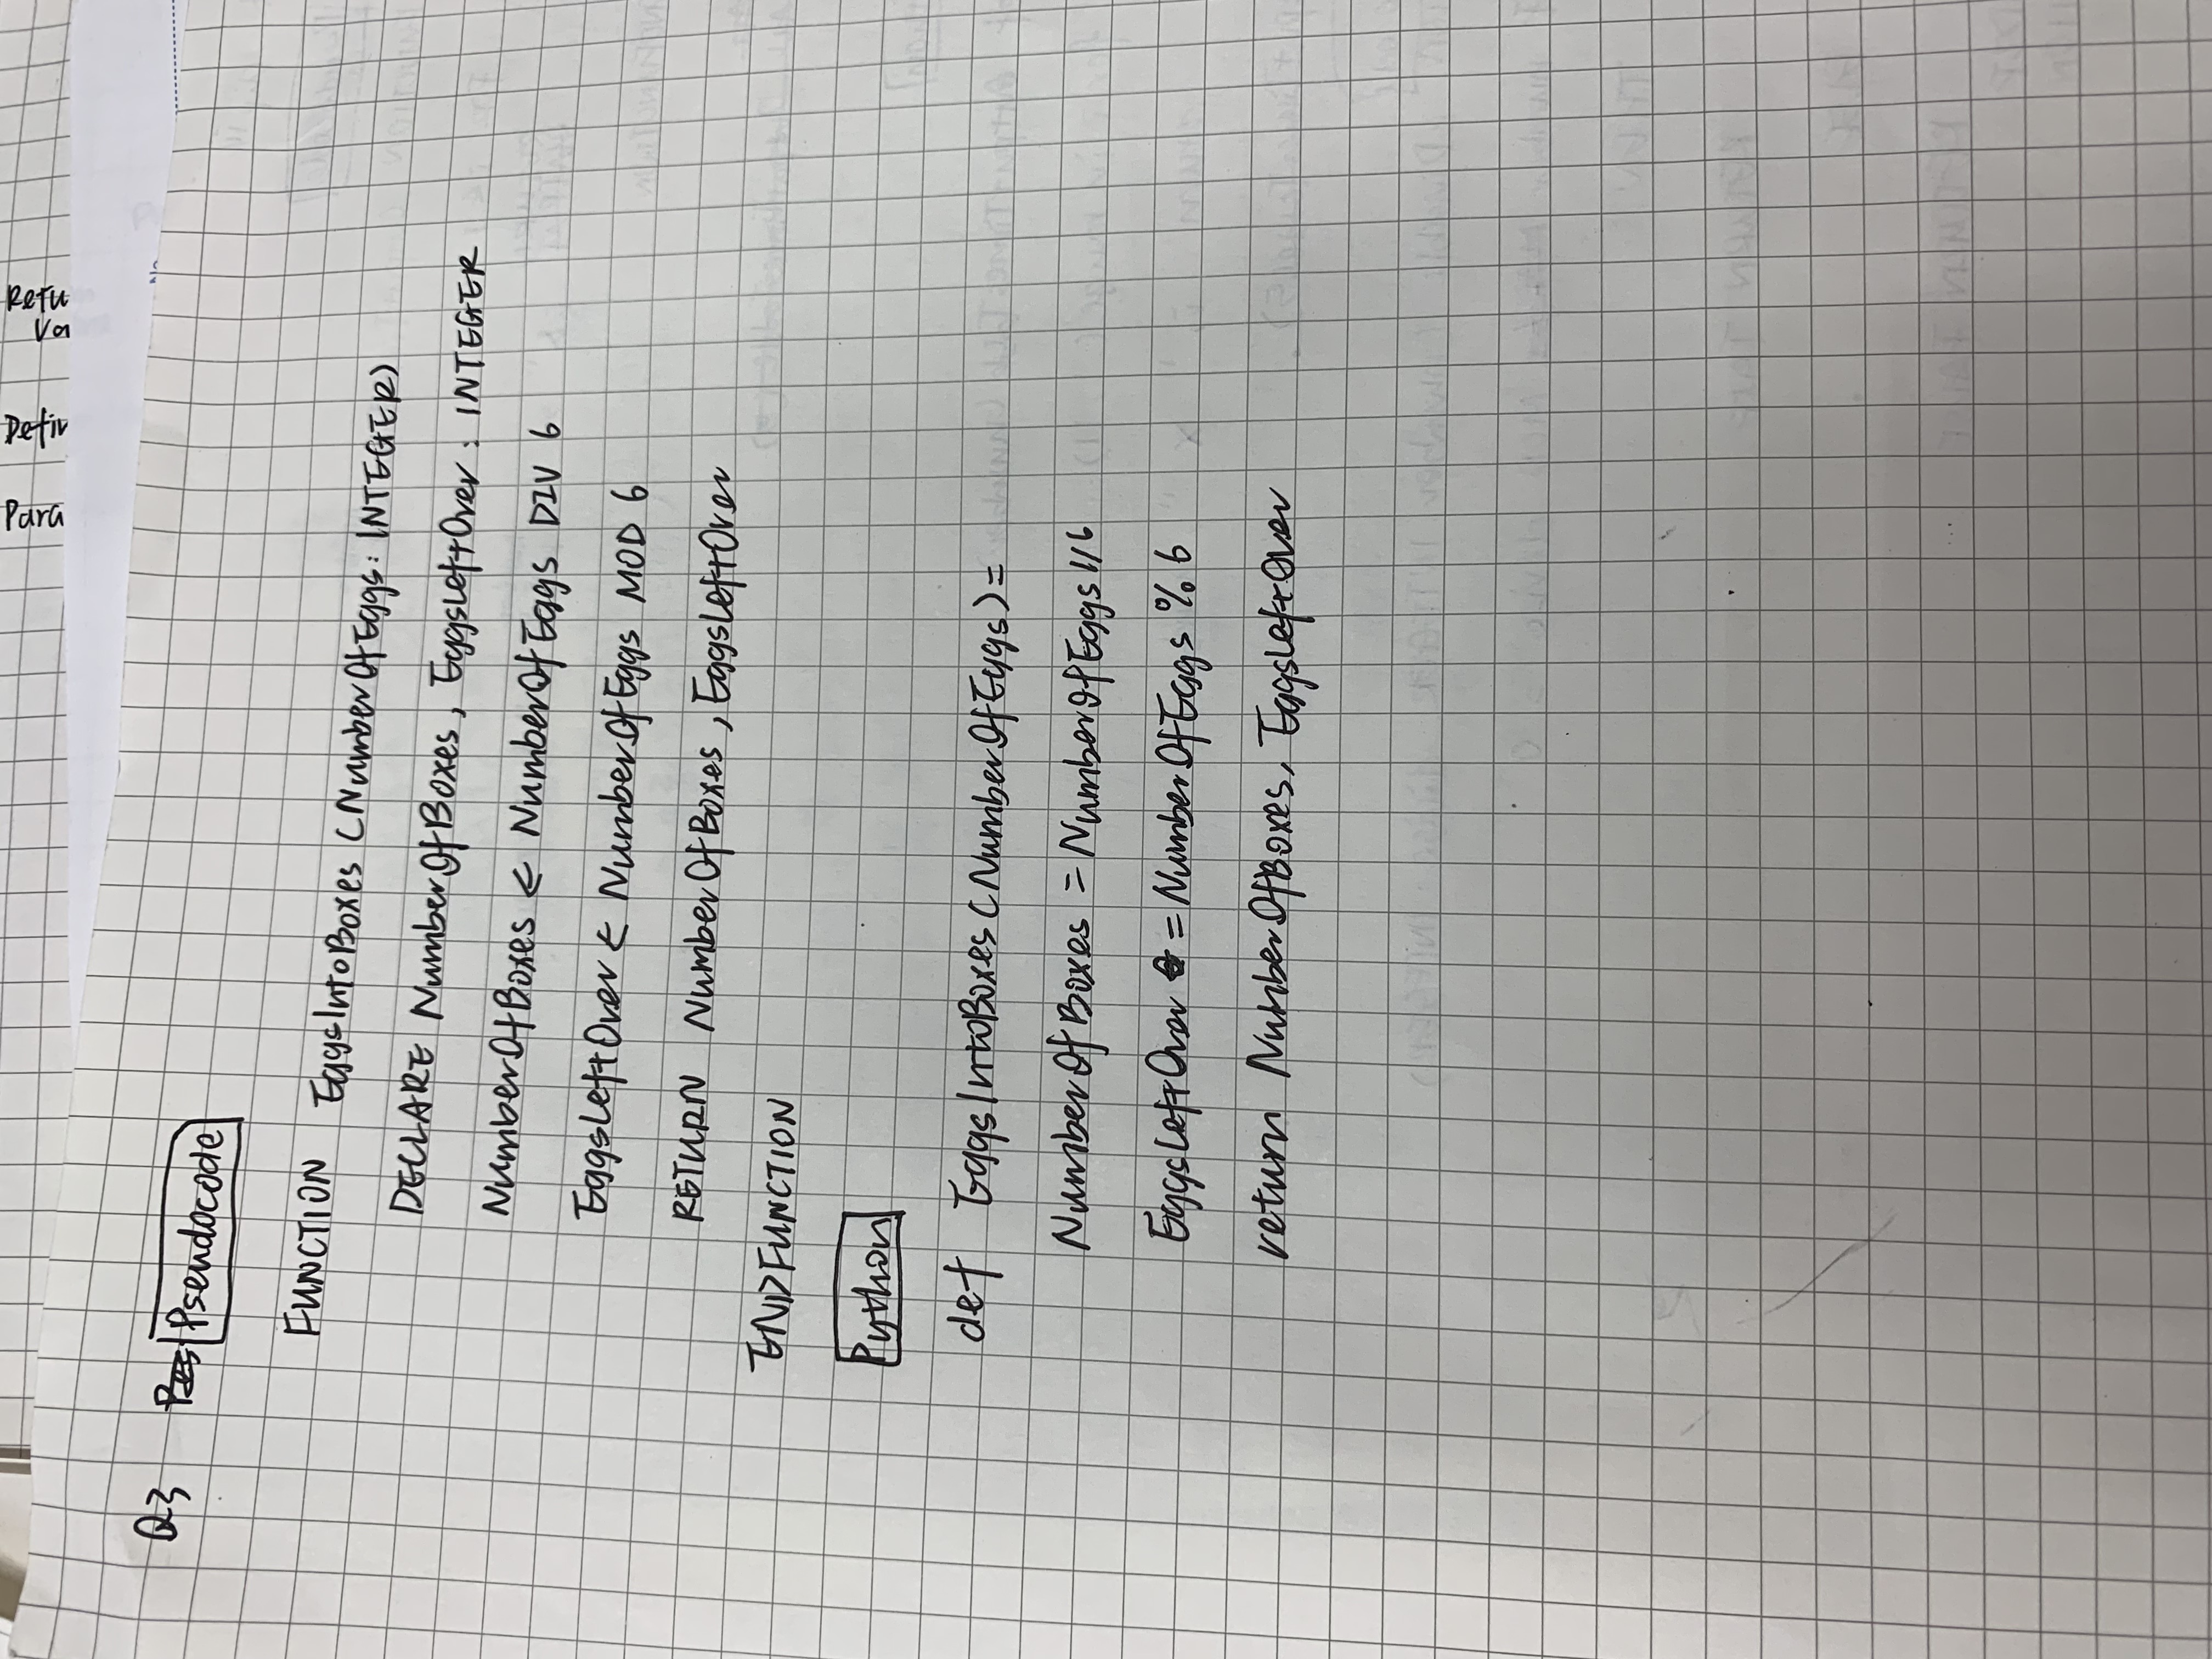 Para
Defin
Retu
Va
No
Q3 Pseudocode
FUNCTION EggsIntoBoxes (NumberOfEggs: INTEGER)
DECLARE NumberOfBoxes, EggsLeftOver : INTEGER
NumberOfBoxes ← NumberOfEggs DIV 6
EggsLeftOver ← NumberOfEggs MOD 6
RETURN NumberOfBoxes, EggsLeftOver
ENDFUNCTION
Python
def EggsIntoBoxes (NumberOfEggs) =
NumberOfBoxes = NumberOfEggs // 6
EggsLeftOver = NumberOfEggs % 6
return NumberOfBoxes, EggsLeftOver